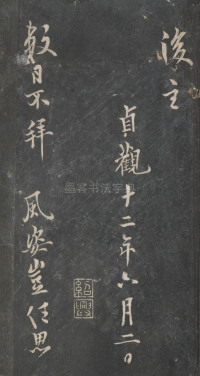 後主
貞觀十二年六月二日
數日不拜 風姿豈任思
墨客书法字典